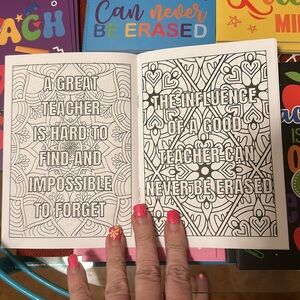 ACH
Can never
BE ERASED
MI
A GREAT
TEACHER
IS HARD TO
FIND AND
IMPOSSIBLE
TO FORGET
THE INFLUENCE
OF A GOOD
TEACHER CAN
NEVER BE ERASED